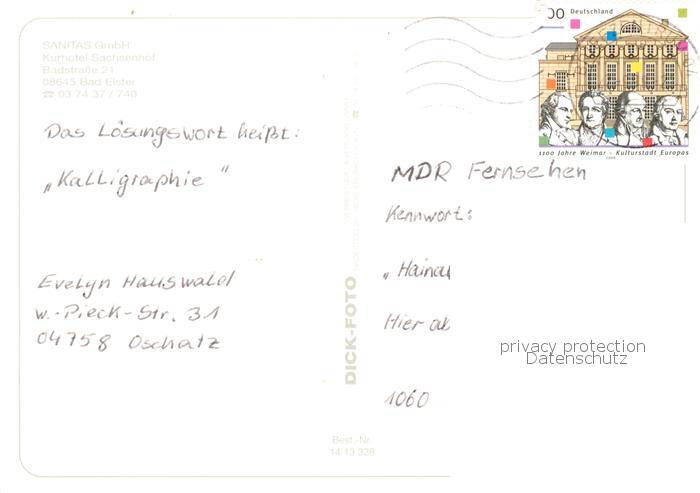 SANITAS GmbH
Kurhotel Sachsenhof
Badstraße 21
08645 Bad Elster
☎ 03 74 37 / 740
Das Lösungswort heißt:
„Kalligraphie"
Evelyn Hauswald
W.-Pieck-Str. 31
04758 Oschatz
DICK-FOTO
Best.-Nr.
14 13 328
00 Deutschland
1100 Jahre Weimar - Kulturstadt Europas
1999
MDR Fernsehen
Kennwort:
„Hainau
Hier ab
1060
privacy protection
Datenschutz